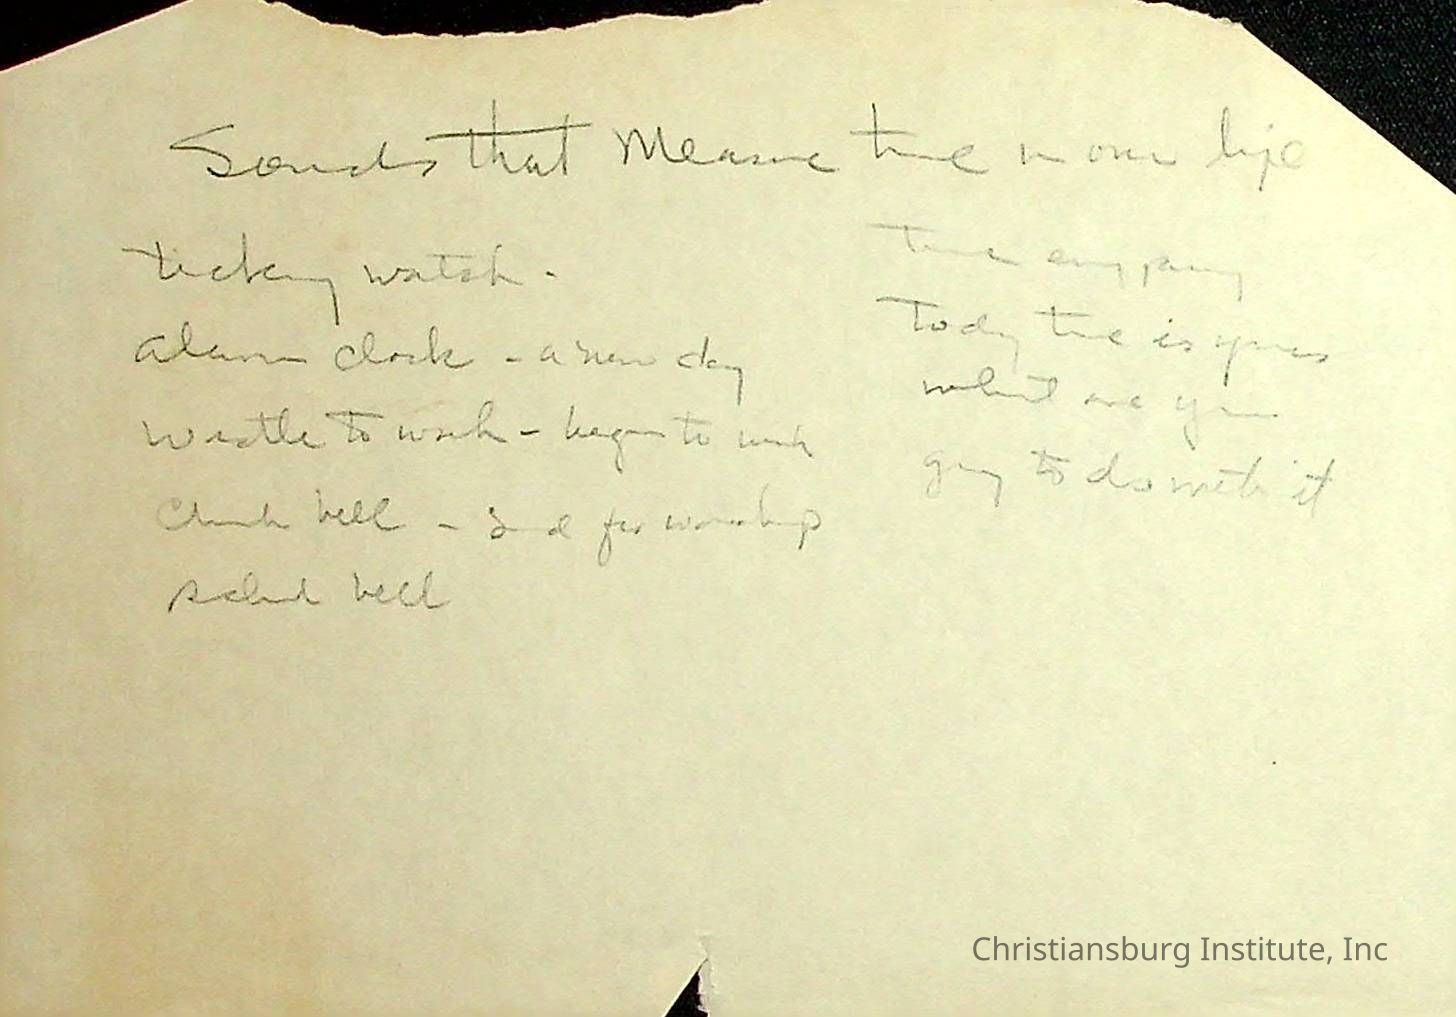 Sounds that Measure time in our life
ticking watch -
alarm clock - a new day
Wistle to work - begin to work
Church bell - for worship
School bell
time
Today time is yours
what are you
going to do with it
Christiansburg Institute, Inc